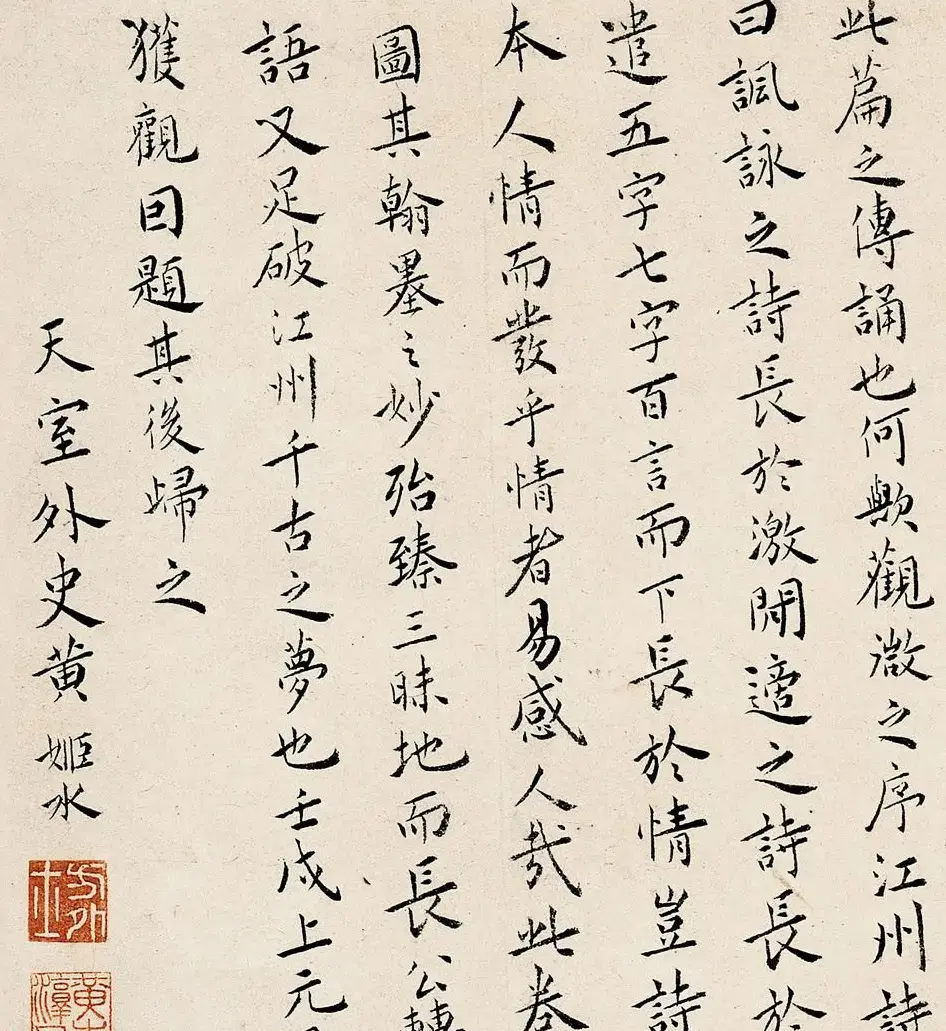 此篇之傳誦也何歟觀微之序江州詩
曰諷詠之詩長於激閒適之詩長於
遣五字七字百言而下長於情豈詩
本人情而發乎情者易感人哉此卷
圖其翰墨之妙殆臻三昧地而長公轉
語又足破江州千古之夢也壬戌上元
獲觀因題其後歸之
天室外史黃姬水